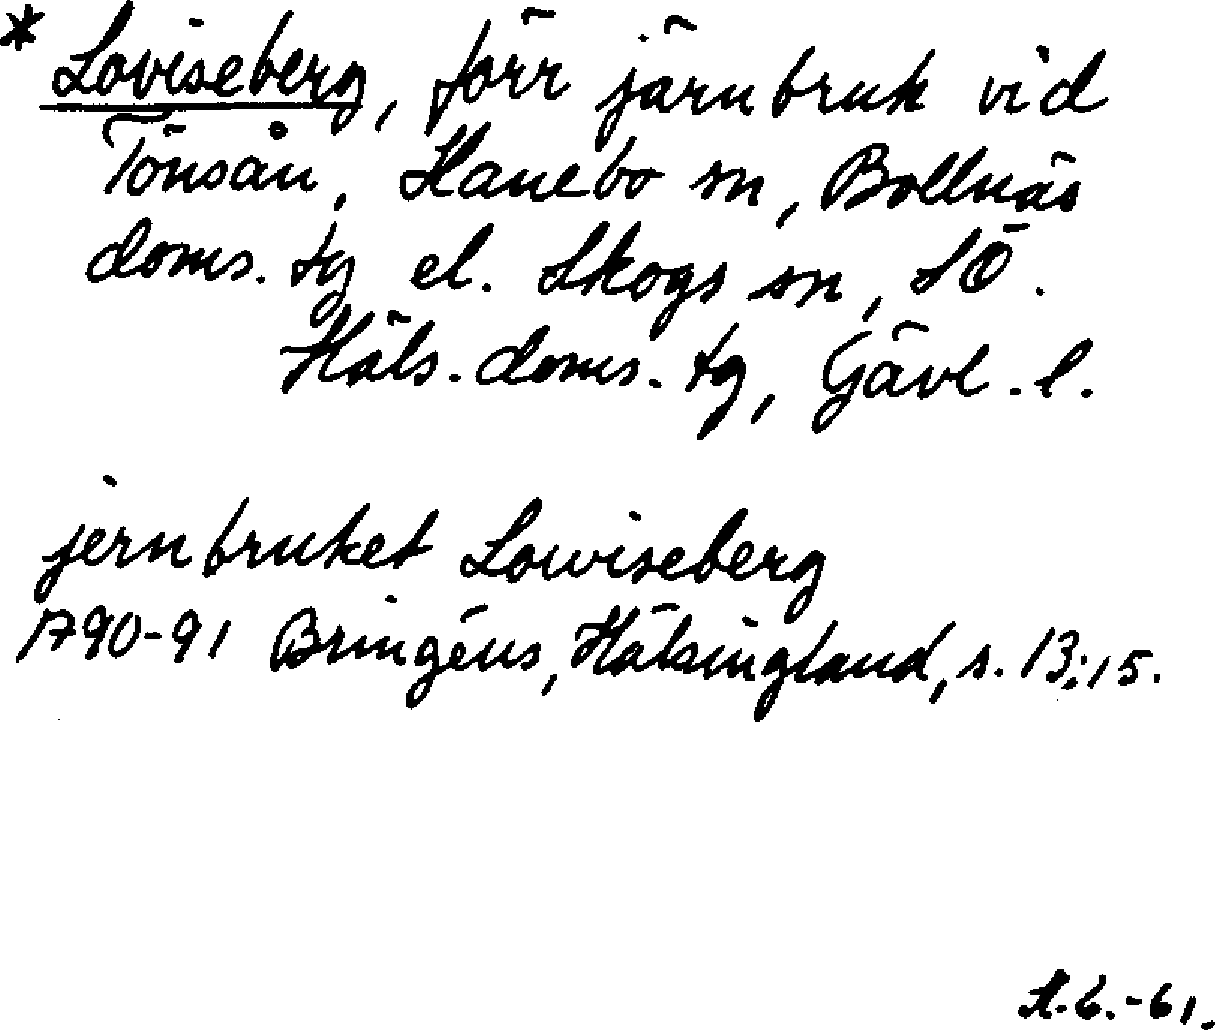 * Loviseberg, förr järnbruk vid
Tönsån, Hanebo sn, Bollnäs
doms. tg el. Skogs sn, SÖ.
Häls. doms. tg, Gävl. l.
jernbruket Lowiseberg
1790-91 Bringéus, Hälsingland, s. 13; 15.
-61.